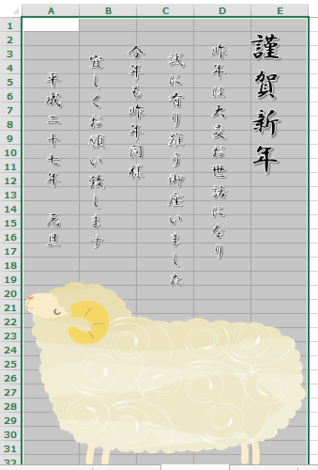 A B C D E
1
2
3
4
5
6
7
8
9
10
11
12
13
14
15
16
17
18
19
20
21
22
23
24
25
26
27
28
29
30
31
32
謹賀新年
昨年は大変お世話になり
誠に有り難う御座いました
今年も昨年同様
宜しくお願い致します
平成二十七年 元旦